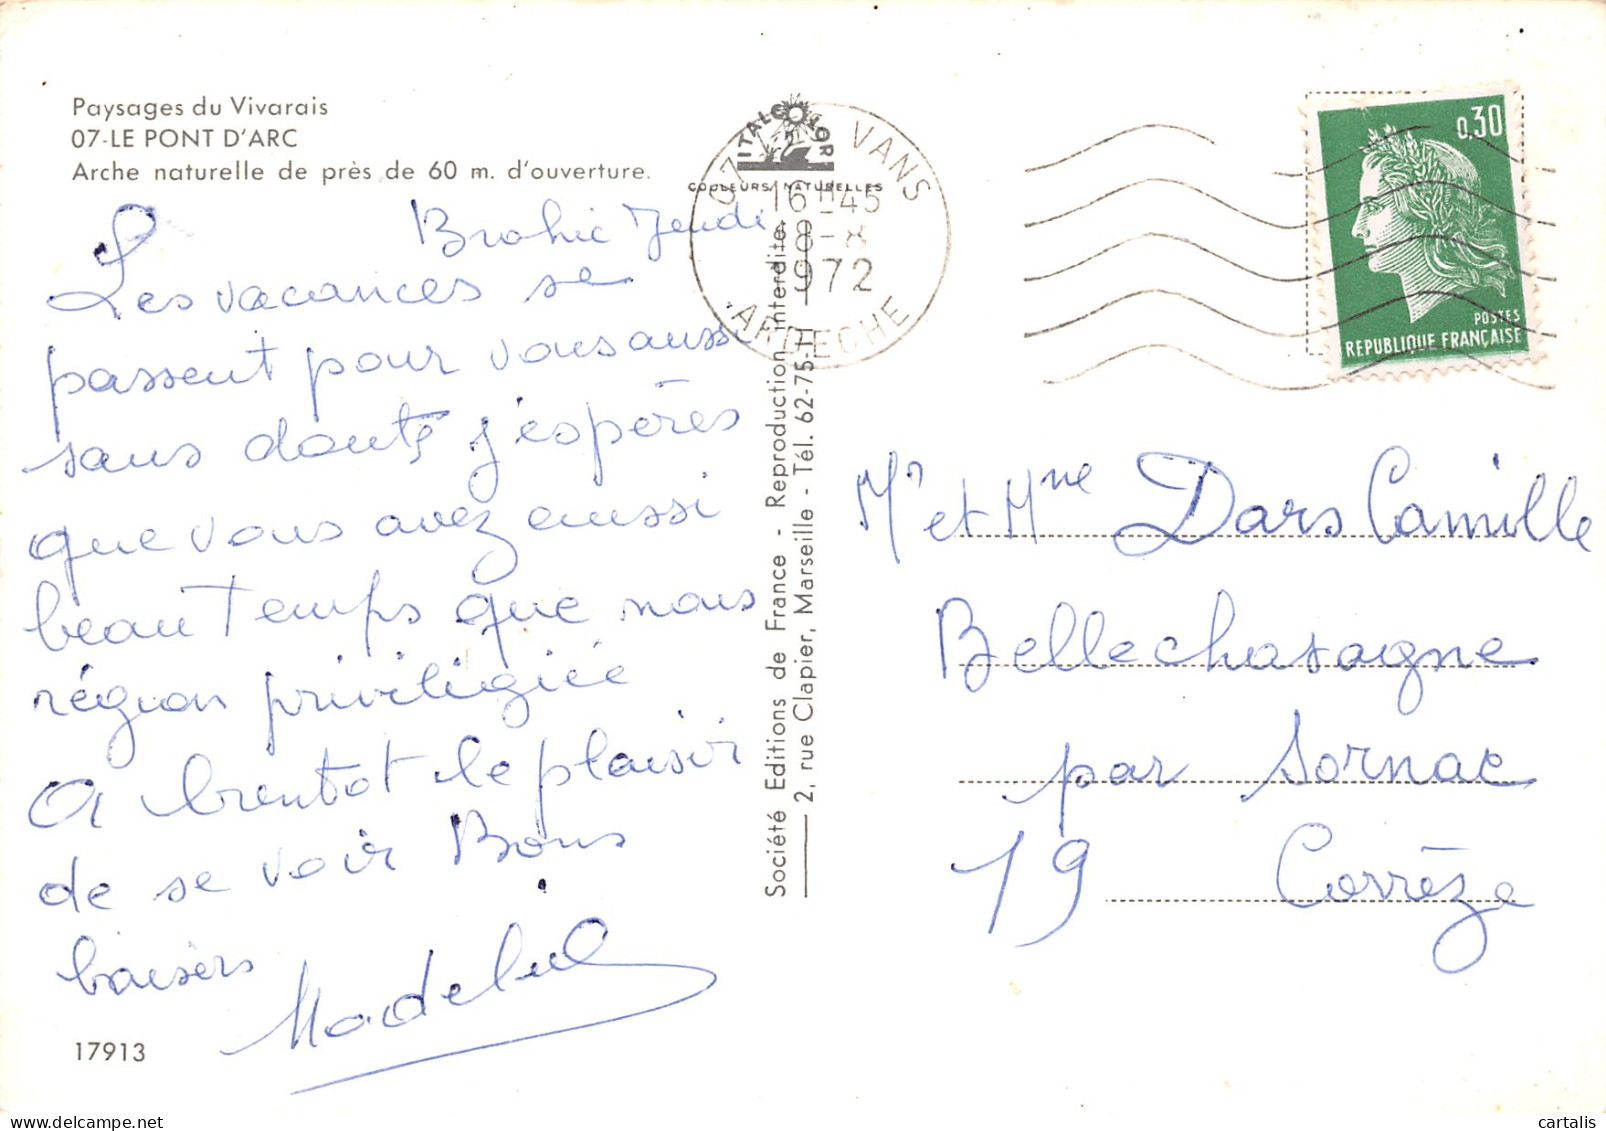 Paysages du Vivarais
07-LE PONT D'ARC
Arche naturelle de près de 60 m. d'ouverture.
Brahic Jeudi
Les vacances se
passent pour vous aussi
sans doute j'espères
que vous avez aussi
beau temps que nous
région privilégiée
A bientot le plaisir
de se voir Bons
baisers
Madeleine
17913
ITALCOLOR
COULEURS NATURELLES
07 VANS
16 H 45
18-8
1972
ARDECHE
Société Editions de France - Reproduction interdite.
2, rue Clapier, Marseille - Tél. 62-75-11
0,30
POSTES
REPUBLIQUE FRANÇAISE
Mr et Mme Dars Camille
Bellechasagne
par Sornac
19 Corrèze
cartalis